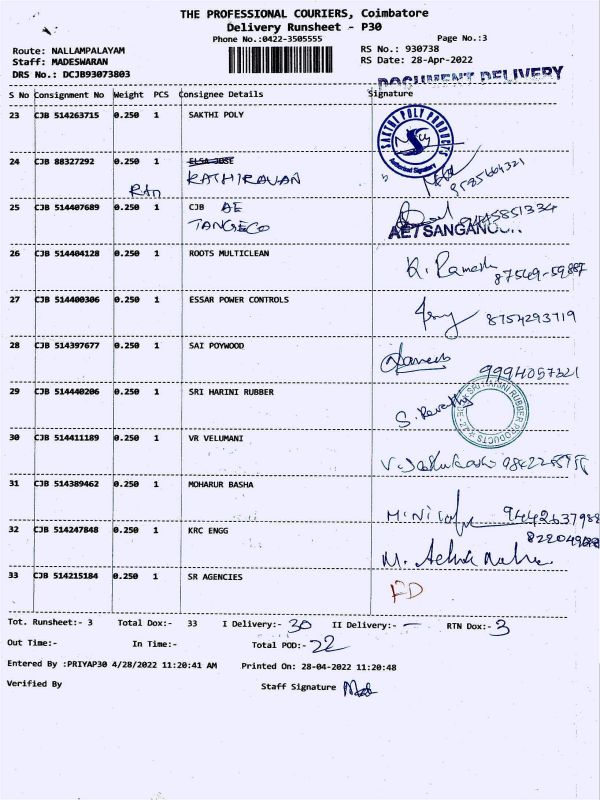 THE PROFESSIONAL COURIERS, Coimbatore
Delivery Runsheet - P30
Phone No.:0422-3505555
Page No.:3
Route: NALLAMPALAYAM
RS No.: 930738
Staff: MADESWARAN
RS Date: 28-Apr-2022
DRS No.: DCJB93073803
DOCUMENT DELIVERY
S No Consignment No Weight PCS Consignee Details Signature
23 CJB 514263715 0.250 1 SAKTHI POLY
SAKTHI POLY PRODUCTS
Authorised Signatory
24 CJB 88327292 0.250 1 ELSA JOSE
KATHIRAVAN
25 CJB 514407689 0.250 1 CJB AE
TANGECO
26 CJB 514404128 0.250 1 ROOTS MULTICLEAN
K. Ramesh 87549-59887
27 CJB 514400306 0.250 1 ESSAR POWER CONTROLS
8754293719
28 CJB 514397677 0.250 1 SAI POYWOOD
9994057321
29 CJB 514440206 0.250 1 SRI HARINI RUBBER
S. Revathy
30 CJB 514411189 0.250 1 VR VELUMANI
31 CJB 514389462 0.250 1 MOHARUR BASHA
9442637988
32 CJB 514247848 0.250 1 KRC ENGG
33 CJB 514215184 0.250 1 SR AGENCIES
FD
Tot. Runsheet:- 3 Total Dox:- 33 I Delivery:- 30 II Delivery:- — RTN Dox:- 3
Out Time:- In Time:- Total POD:- 22
Entered By :PRIYAP30 4/28/2022 11:20:41 AM Printed On: 28-04-2022 11:20:48
Verified By Staff Signature